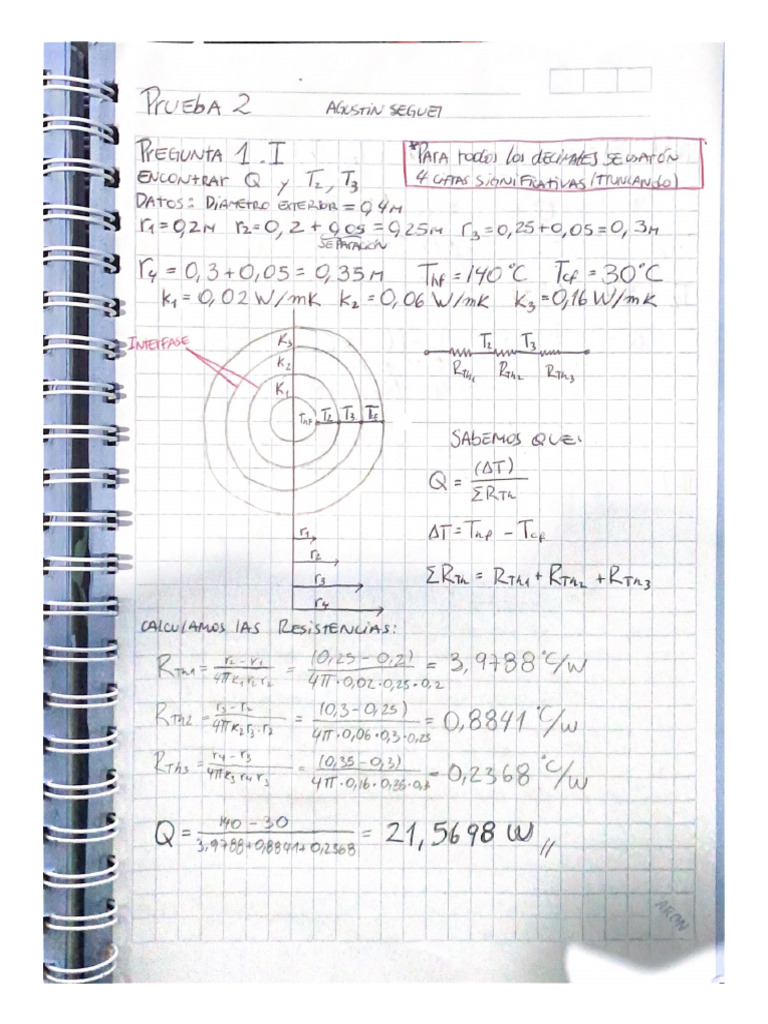 PRUEBA 2 AGUSTIN SEGUEL
PREGUNTA 1.I
*PARA todos los DECIMALES SE USARÓN
4 CIFRAS SIGNIFICATIVAS (TRUNCANDO)
ENCONTRAR Q y T2, T3
DATOS: DIAMETRO EXTERIOR = 0,4M
r1 = 0,2M r2 = 0,2 + 0,05 = 0,25M r3 = 0,25 + 0,05 = 0,3M
SEPARACIÓN
r4 = 0,3 + 0,05 = 0,35M THF = 140°C Tcf = 30°C
K1 = 0,02 W/mK K2 = 0,06 W/mK K3 = 0,16 W/mK
INTERFASE
K3
K2
K1
THF T2 T3 Tcf
T2 T3
RTh1 RTh2 RTh3
SABEMOS QUE:
Q = (ΔT) / ΣRTh
ΔT = Thf - Tcf
ΣRTh = RTh1 + RTh2 + RTh3
r1
r2
r3
r4
CALCULAMOS LAS RESISTENCIAS:
RTh1 = r2 - r1 / 4πK1r1r2 = (0,25 - 0,2) / 4π·0,02·0,25·0,2 = 3,9788 °C/W
RTh2 = r3 - r2 / 4πK2r3·r2 = (0,3 - 0,25) / 4π·0,06·0,3·0,25 = 0,8841 °C/W
RTh3 = r4 - r3 / 4πK3r4r3 = (0,35 - 0,3) / 4π·0,16·0,35·0,3 = 0,2368 °C/W
Q = 140 - 30 / 3,9788 + 0,8841 + 0,2368 = 21,5698 W //
ARON